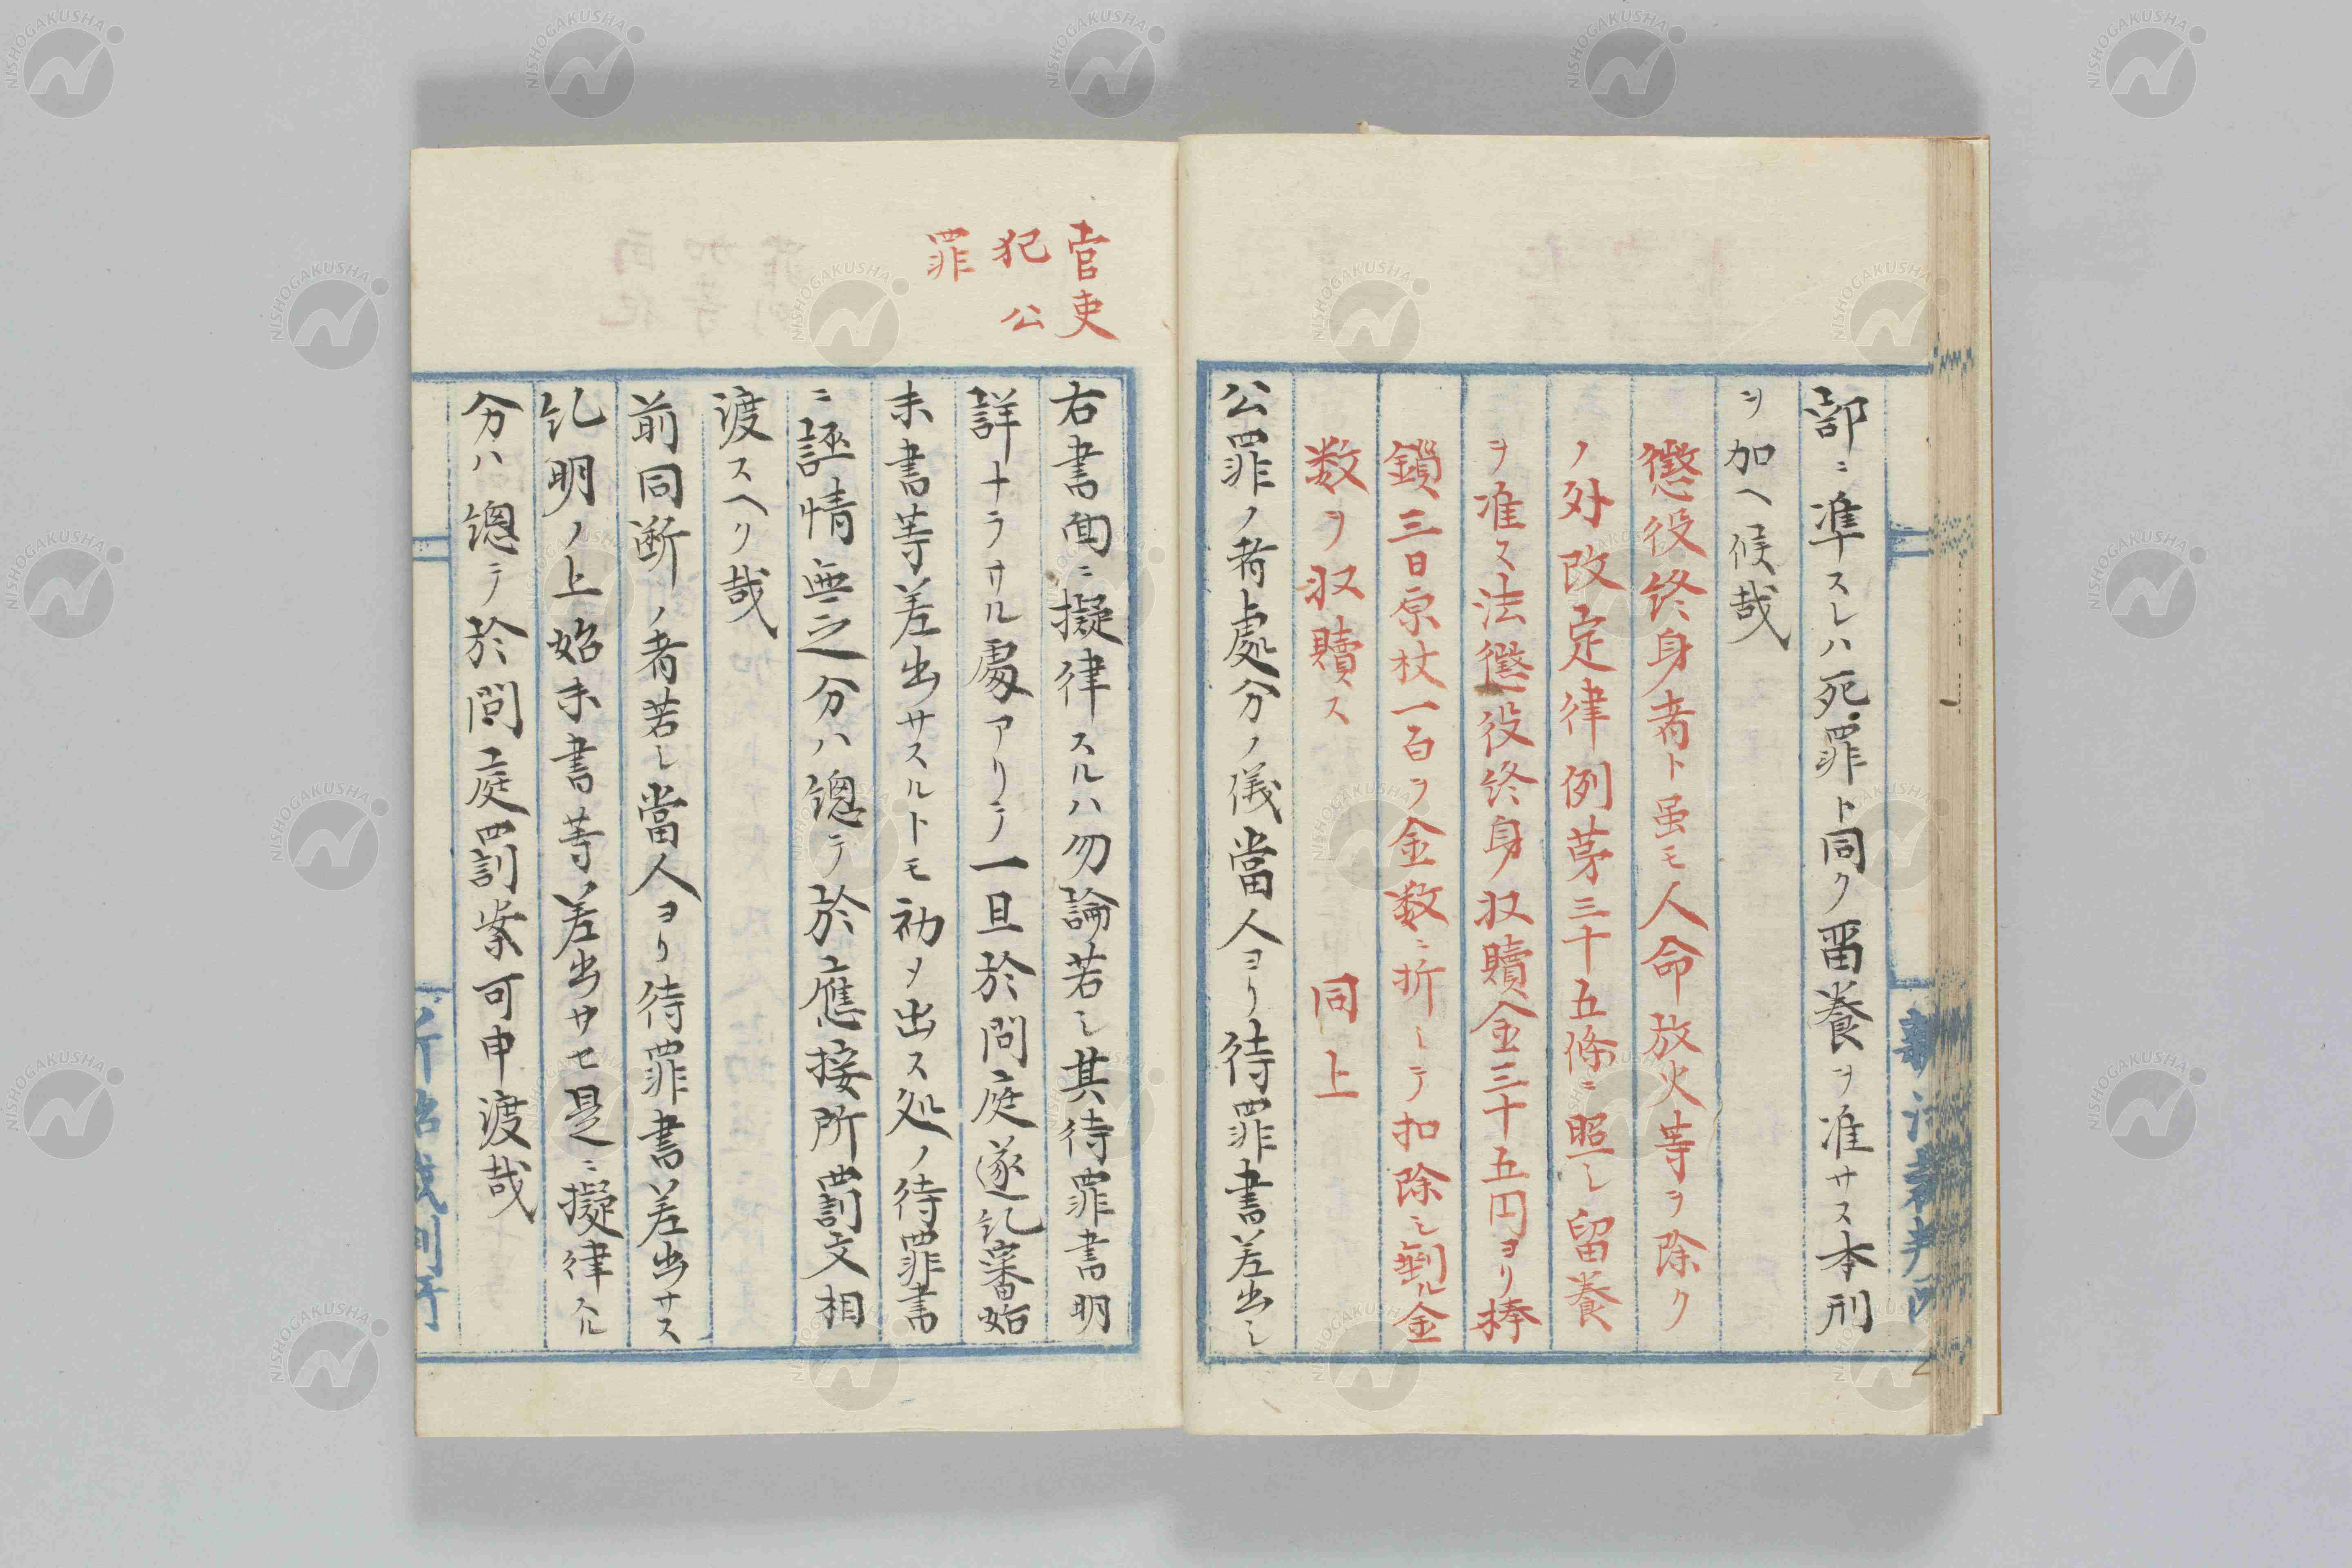 部ニ準スレハ死罪ト同ク畱養ヲ准サス本刑
ヲ加ヘ候哉
懲役終身者ト虽モ人命放火等ヲ除ク
ノ外改定律例苐三十五條ニ照シ留養
ヲ准ス法懲役終身収贖金三十五円ヨリ棒
鎖三日原杖一百ヲ金数ニ折シテ扣除シ剰ル金
数ヲ収贖ス 同上
公罪ノ者處分ノ儀當人ヨリ待罪書差出シ
官吏
犯公
罪
右書面ニ擬律スルハ勿論若シ其待罪書明
詳ナラサル處アリテ一旦於問庭遂訊審始
末書等差出サスルトモ初メ出ス処ノ待罪書
ニ誣情無之分ハ總テ於應接所罰文相
渡スヘリ哉
前同断ノ者若シ當人ヨリ待罪書差出サス
訊明ノ上始末書等差出サセ是ニ擬律スル
分ハ總テ於問庭罰案可申渡哉
NISHOGAKUSHA